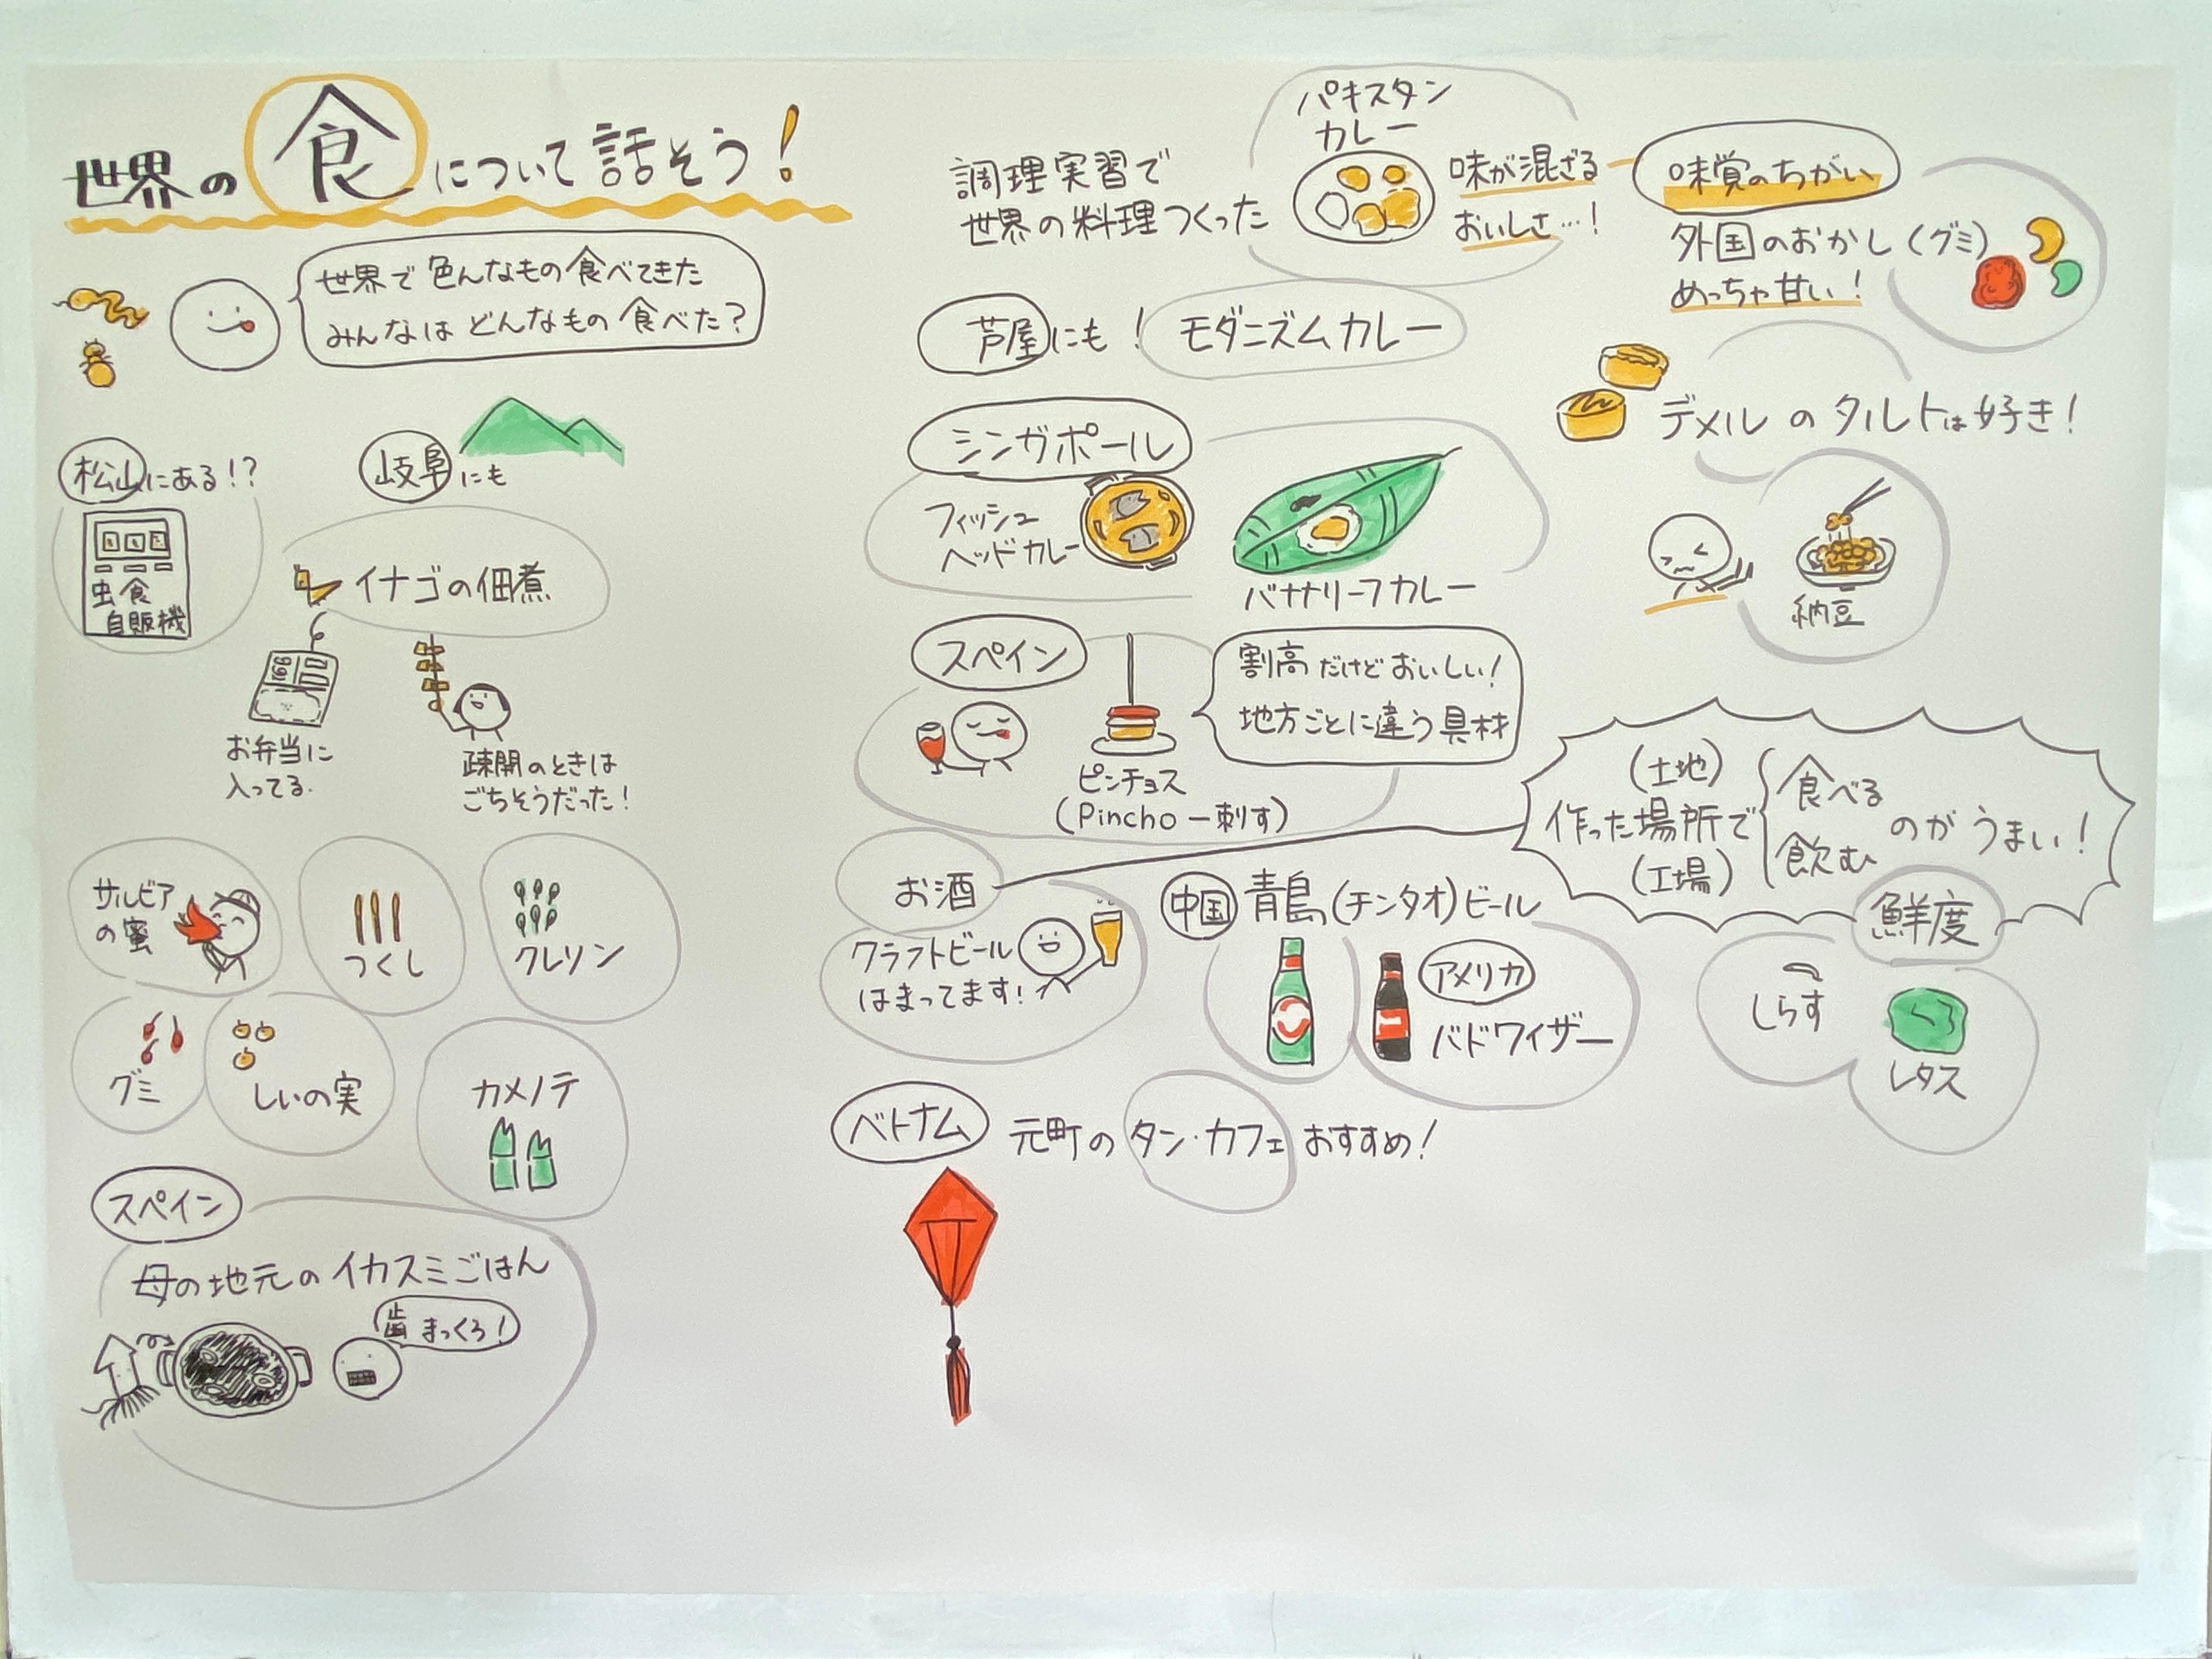 世界の食について話そう!
世界で色んなもの食べてきた
みんなはどんなもの食べた?
松山にある!?
虫食
自販機
岐阜にも
イナゴの佃煮
お弁当に
入ってる.
疎開のときは
ごちそうだった!
サルビア
の蜜
つくし
クレソン
グミ
しいの実
カメノテ
スペイン
母の地元のイカスミごはん
歯まっくろ!
調理実習で
世界の料理つくった
パキスタン
カレー
味が混ざる
おいしさ…!
味覚のちがい
外国のおかし(グミ)
めっちゃ甘い!
芦屋にも!モダニズムカレー
デメルのタルトは好き!
納豆
シンガポール
フィッシュ
ヘッドカレー
バナナリーフカレー
スペイン
ピンチョス
(Pincho—刺す)
割高だけどおいしい!
地方ごとに違う具材
お酒
(土地)
作った場所で
(工場)
食べる
飲む
のがうまい!
鮮度
しらす
レタス
クラフトビール
はまってます!
中国 青島(チンタオ)ビール
アメリカ
バドワイザー
ベトナム 元町のタン・カフェおすすめ!